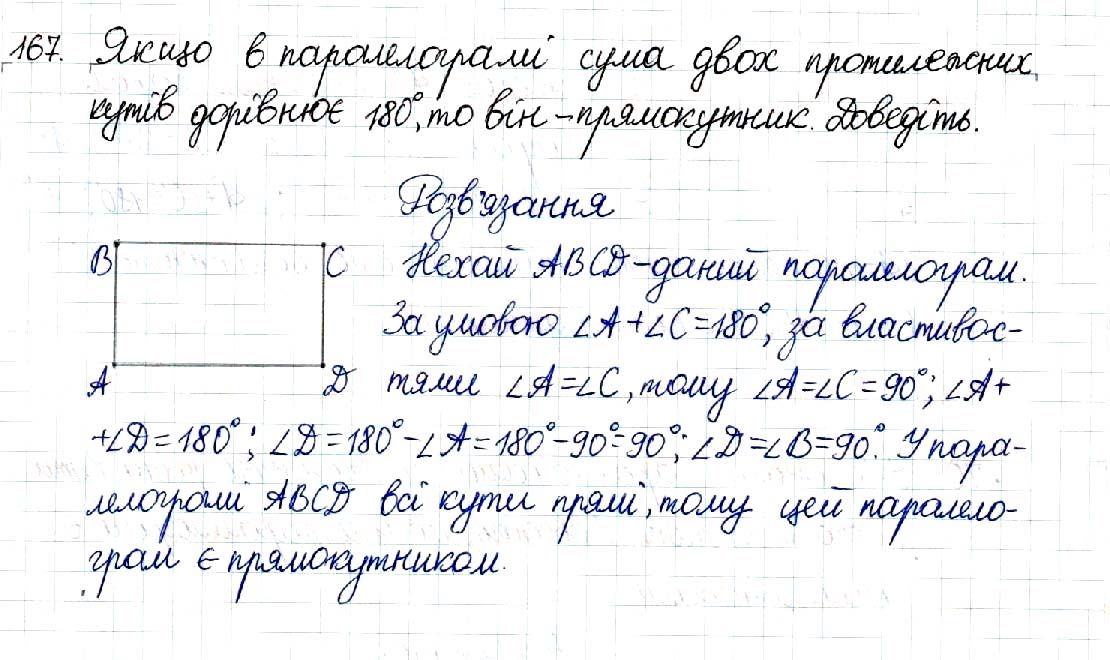 167. Якщо в паралелограмі сума двох протилежних
кутів дорівнює 180°, то він – прямокутник. Доведіть.
Розв'язання
B C Нехай ABCD – даний паралелограм.
За умовою ∠A + ∠C = 180°, за властивос-
A D тями ∠A = ∠C, тому ∠A = ∠C = 90°; ∠A +
+ ∠D = 180°; ∠D = 180° – ∠A = 180° – 90° = 90°; ∠D = ∠B = 90°. У пара-
лелограмі ABCD всі кути прямі, тому цей паралело-
грам є прямокутником.